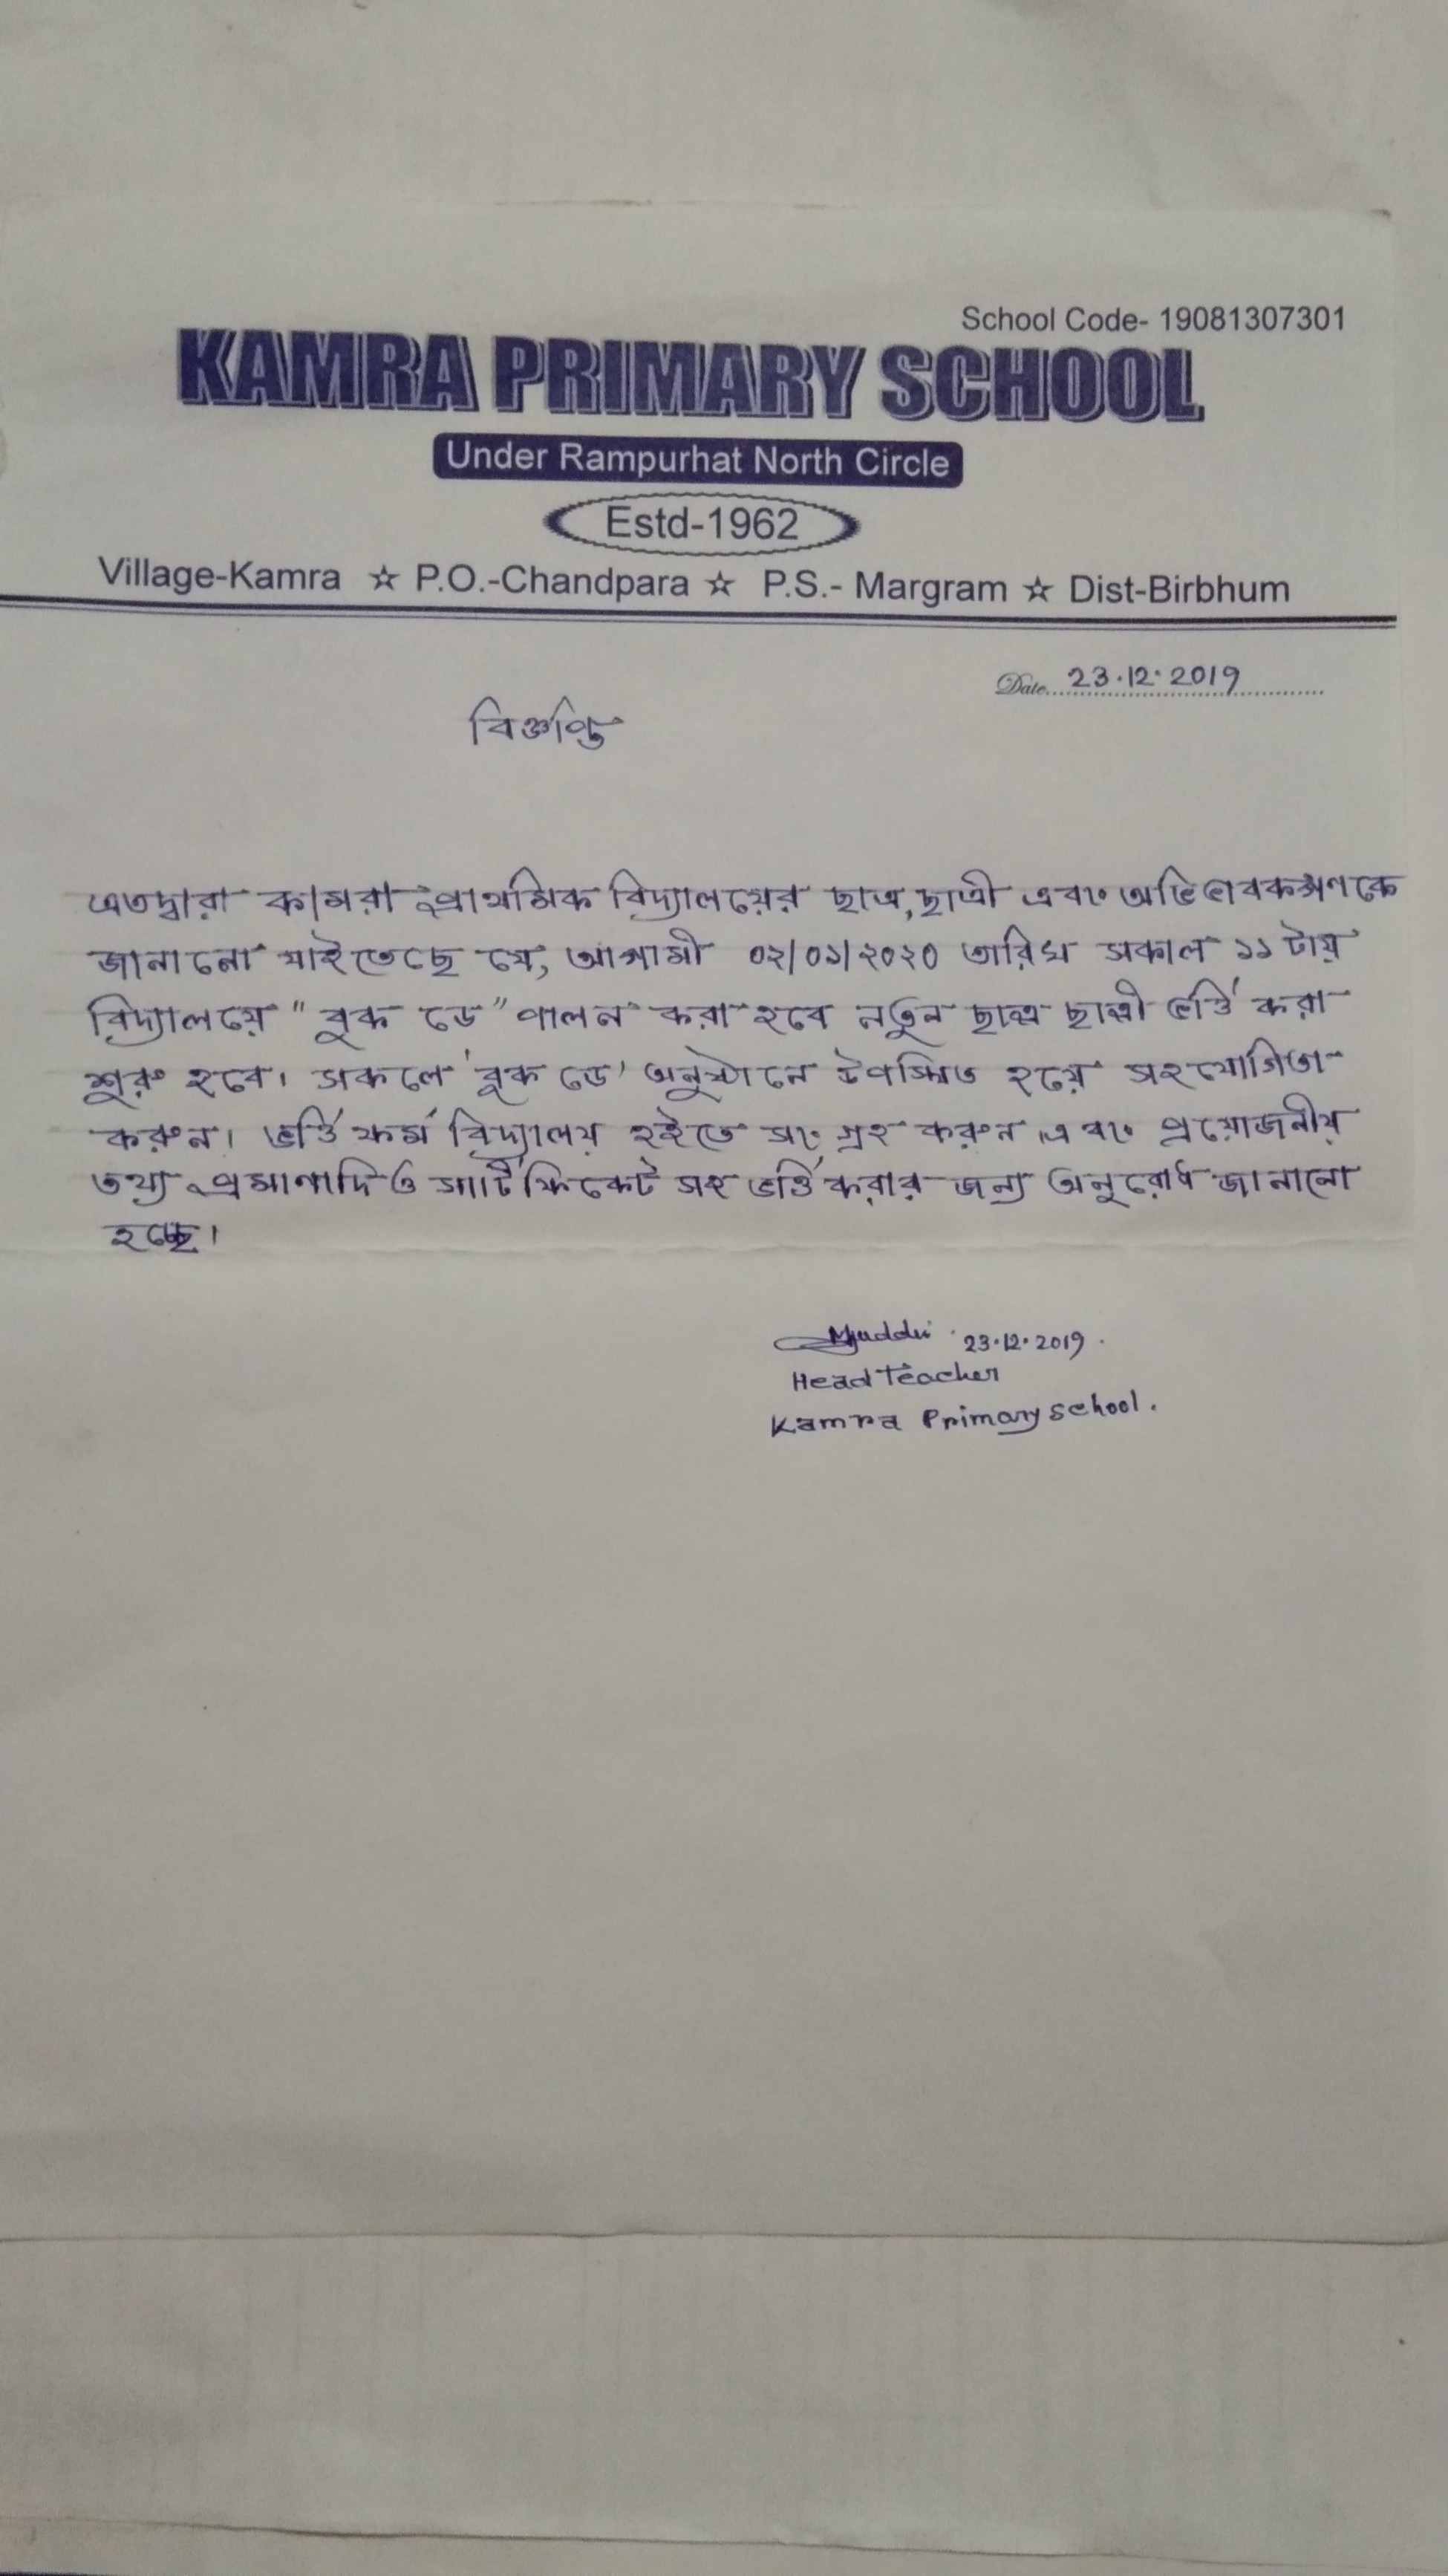 School Code- 19081307301
KAMRA PRIMARY SCHOOL
Under Rampurhat North Circle
Estd-1962
Village-Kamra ☆ P.O.-Chandpara ☆ P.S.- Margram ☆ Dist-Birbhum
Date 23.12.2019
বিজ্ঞপ্তি
এতদ্বারা কামরা প্রাথমিক বিদ্যালয়ের ছাত্র, ছাত্রী এবং অভিভাবকগণকে
জানানো যাইতেছে যে, আগামী ০২/০১/২০২০ তারিখ সকাল ১১ টায়
বিদ্যালয়ে "বুক ডে" পালন করা হবে নতুন ছাত্র ছাত্রী ভর্তি করা
শুরু হবে। সকলে 'বুক ডে' অনুষ্ঠানে উপস্থিত হয়ে সহযোগিতা
করুন। ভর্তি ফর্ম বিদ্যালয় হইতে সংগ্রহ করুন এবং প্রয়োজনীয়
তথ্য প্রমাণাদি ও সার্টিফিকেট সহ ভর্তি করার জন্য অনুরোধ জানানো
হচ্ছে।
23.12.2019.
Head Teacher
Kamra Primary school.